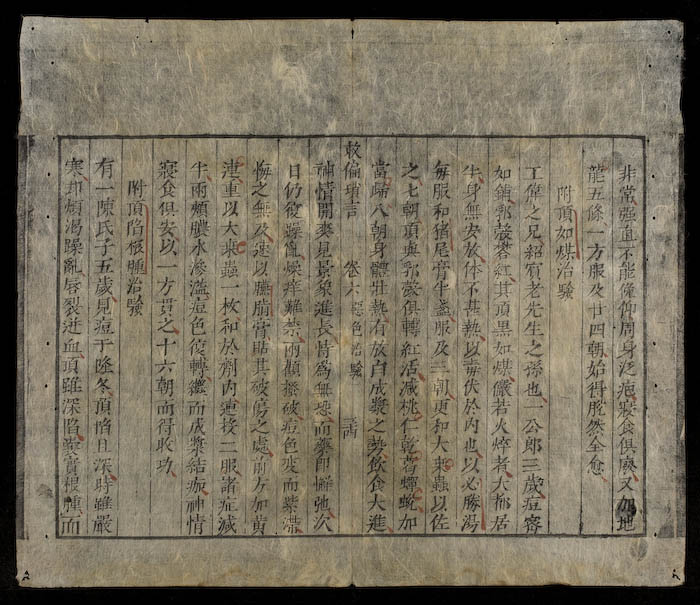 非常強血不能俯仰周身泛疱寢食俱廢又加地
龍五條一方服及廿四朝始得脫然全愈
附頂如煤治驗
工偉之兄紹寅老先生之孫也一公郎三歲痘密
如鋪郭磐礬紅其頂黑如煤儼若火焠者大都居
半身無安放体不甚熱以毒伏於內也以必勝湯
每服和猪尾膏半盞服及三朝更和大桑蟲以佐
之七朝頂與郭磐俱轉紅活減桃仁乾葛蟬蛻加
當歸八朝身體壯熱有放白成漿之勢飲食大進
救偏瑣言 卷六 惡色治驗
神情開爽見景象進長恃為無恙而藥即懈弛次
日仍復躁亂燥痒難禁兩顴擦破痘色變而紫滯
悔之無及速以臙脂膏貼其破傷之處前方加黃
連重以大桑蟲一枚和於劑內連投二服諸症減
半兩頰膿水滲溢痘色復轉紅而成漿結痂神情
寢食俱安以一方貫之十六朝而得收功
附頂陷根腫治驗
有一陳氏子五歲見痘于隆冬頂陷且深時雖嚴
寒却煩渴躁亂唇裂迸血頂雖深陷囊實根腫而